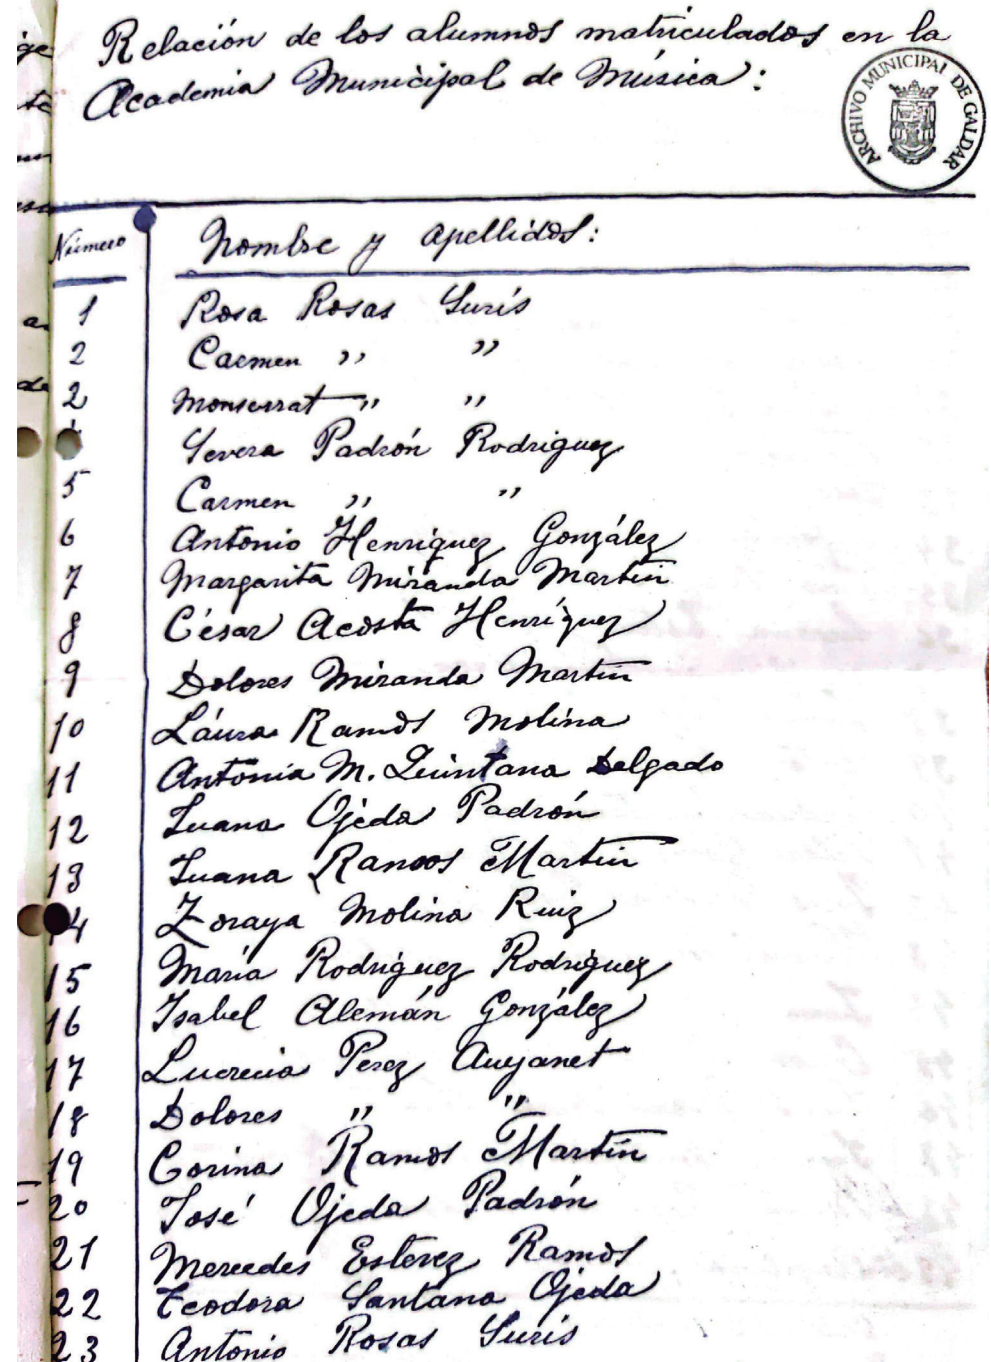 Relación de los alumnos matriculados en la
Academia Municipal de Música:
ARCHIVO MUNICIPAL DE GALDAR
Número Nombre y apellidos:
1 Rosa Rosas Surís
2 Carmen " "
2 Monserrat " "
Severa Padrón Rodriguez
5 Carmen " "
6 Antonio Henríquez González
7 Margarita Miranda Martín
8 César Acosta Henríquez
9 Dolores Miranda Martín
10 Láura Ramos Molina
11 Antonia M. Quintana Delgado
12 Juana Ojeda Padrón
13 Juana Ramos Martín
14 Zoraya Molina Ruiz
15 María Rodríguez Rodríguez
16 Isabel Alemán González
17 Lucrecia Perez Auyanet
18 Dolores " "
19 Corina Ramos Martín
20 José Ojeda Padrón
21 Mercedes Estevez Ramos
22 Teodora Santana Ojeda
23 Antonio Rosas Surís